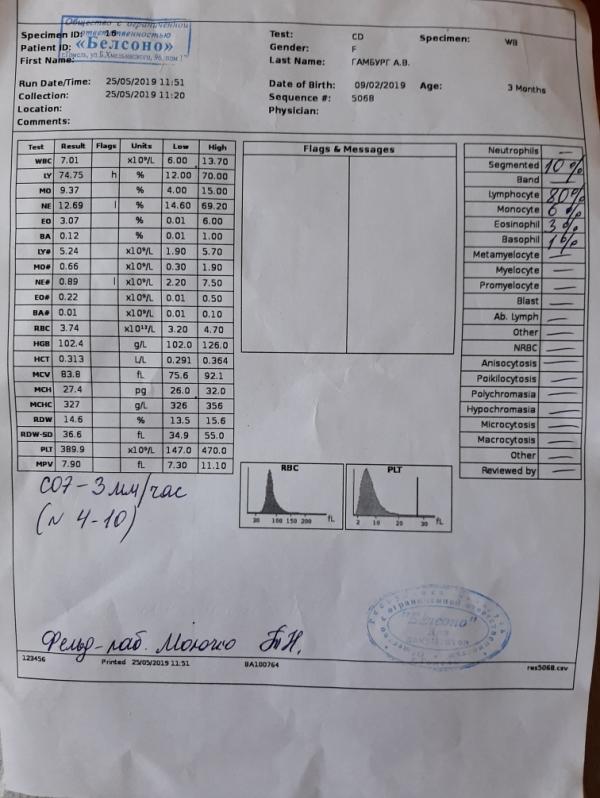 Общество с ограниченной
ответственностью
«Белсоно»
г.Гомель, ул.Б.Хмельницкого, 96, пом 1
Specimen ID: 16
Patient ID:
First Name:
Test: CD Specimen: WB
Gender: F
Last Name: ГАМБУРГ А.В.
Run Date/Time: 25/05/2019 11:51
Collection: 25/05/2019 11:20
Location:
Comments:
Date of Birth: 09/02/2019 Age: 3 Months
Sequence #: 5068
Physician:
Test Result Flags Units Low High
WBC 7.01 x10⁹/L 6.00 13.70
LY 74.75 h % 12.00 70.00
MO 9.37 % 4.00 15.00
NE 12.69 l % 14.60 69.20
EO 3.07 % 0.01 6.00
BA 0.12 % 0.01 1.00
LY# 5.24 x10⁹/L 1.90 5.70
MO# 0.66 x10⁹/L 0.30 1.90
NE# 0.89 l x10⁹/L 2.20 7.50
EO# 0.22 x10⁹/L 0.01 0.50
BA# 0.01 x10⁹/L 0.01 0.10
RBC 3.74 x10¹²/L 3.20 4.70
HGB 102.4 g/L 102.0 126.0
HCT 0.313 L/L 0.291 0.364
MCV 83.8 fL 75.6 92.1
MCH 27.4 pg 26.0 32.0
MCHC 327 g/L 326 356
RDW 14.6 % 13.5 15.6
RDW-SD 36.6 fL 34.9 55.0
PLT 389.9 x10⁹/L 147.0 470.0
MPV 7.90 fL 7.30 11.10
Flags & Messages
Neutrophils —
Segmented 10%
Band —
Lymphocyte 80%
Monocyte 6%
Eosinophil 3%
Basophil 1%
Metamyelocyte —
Myelocyte —
Promyelocyte —
Blast —
Ab. Lymph —
Other —
NRBC —
Anisocytosis —
Poikilocytosis —
Polychromasia —
Hypochromasia —
Microcytosis —
Macrocytosis —
Other —
Reviewed by —
RBC
30 100 150 200 fL
PLT
2 10 20 30 fL
СОЭ - 3 мм/час
(N 4-10)
"Белсоно"
Фельд-лаб.
123456 Printed 25/05/2019 11:51 BA100764 res5068.csv